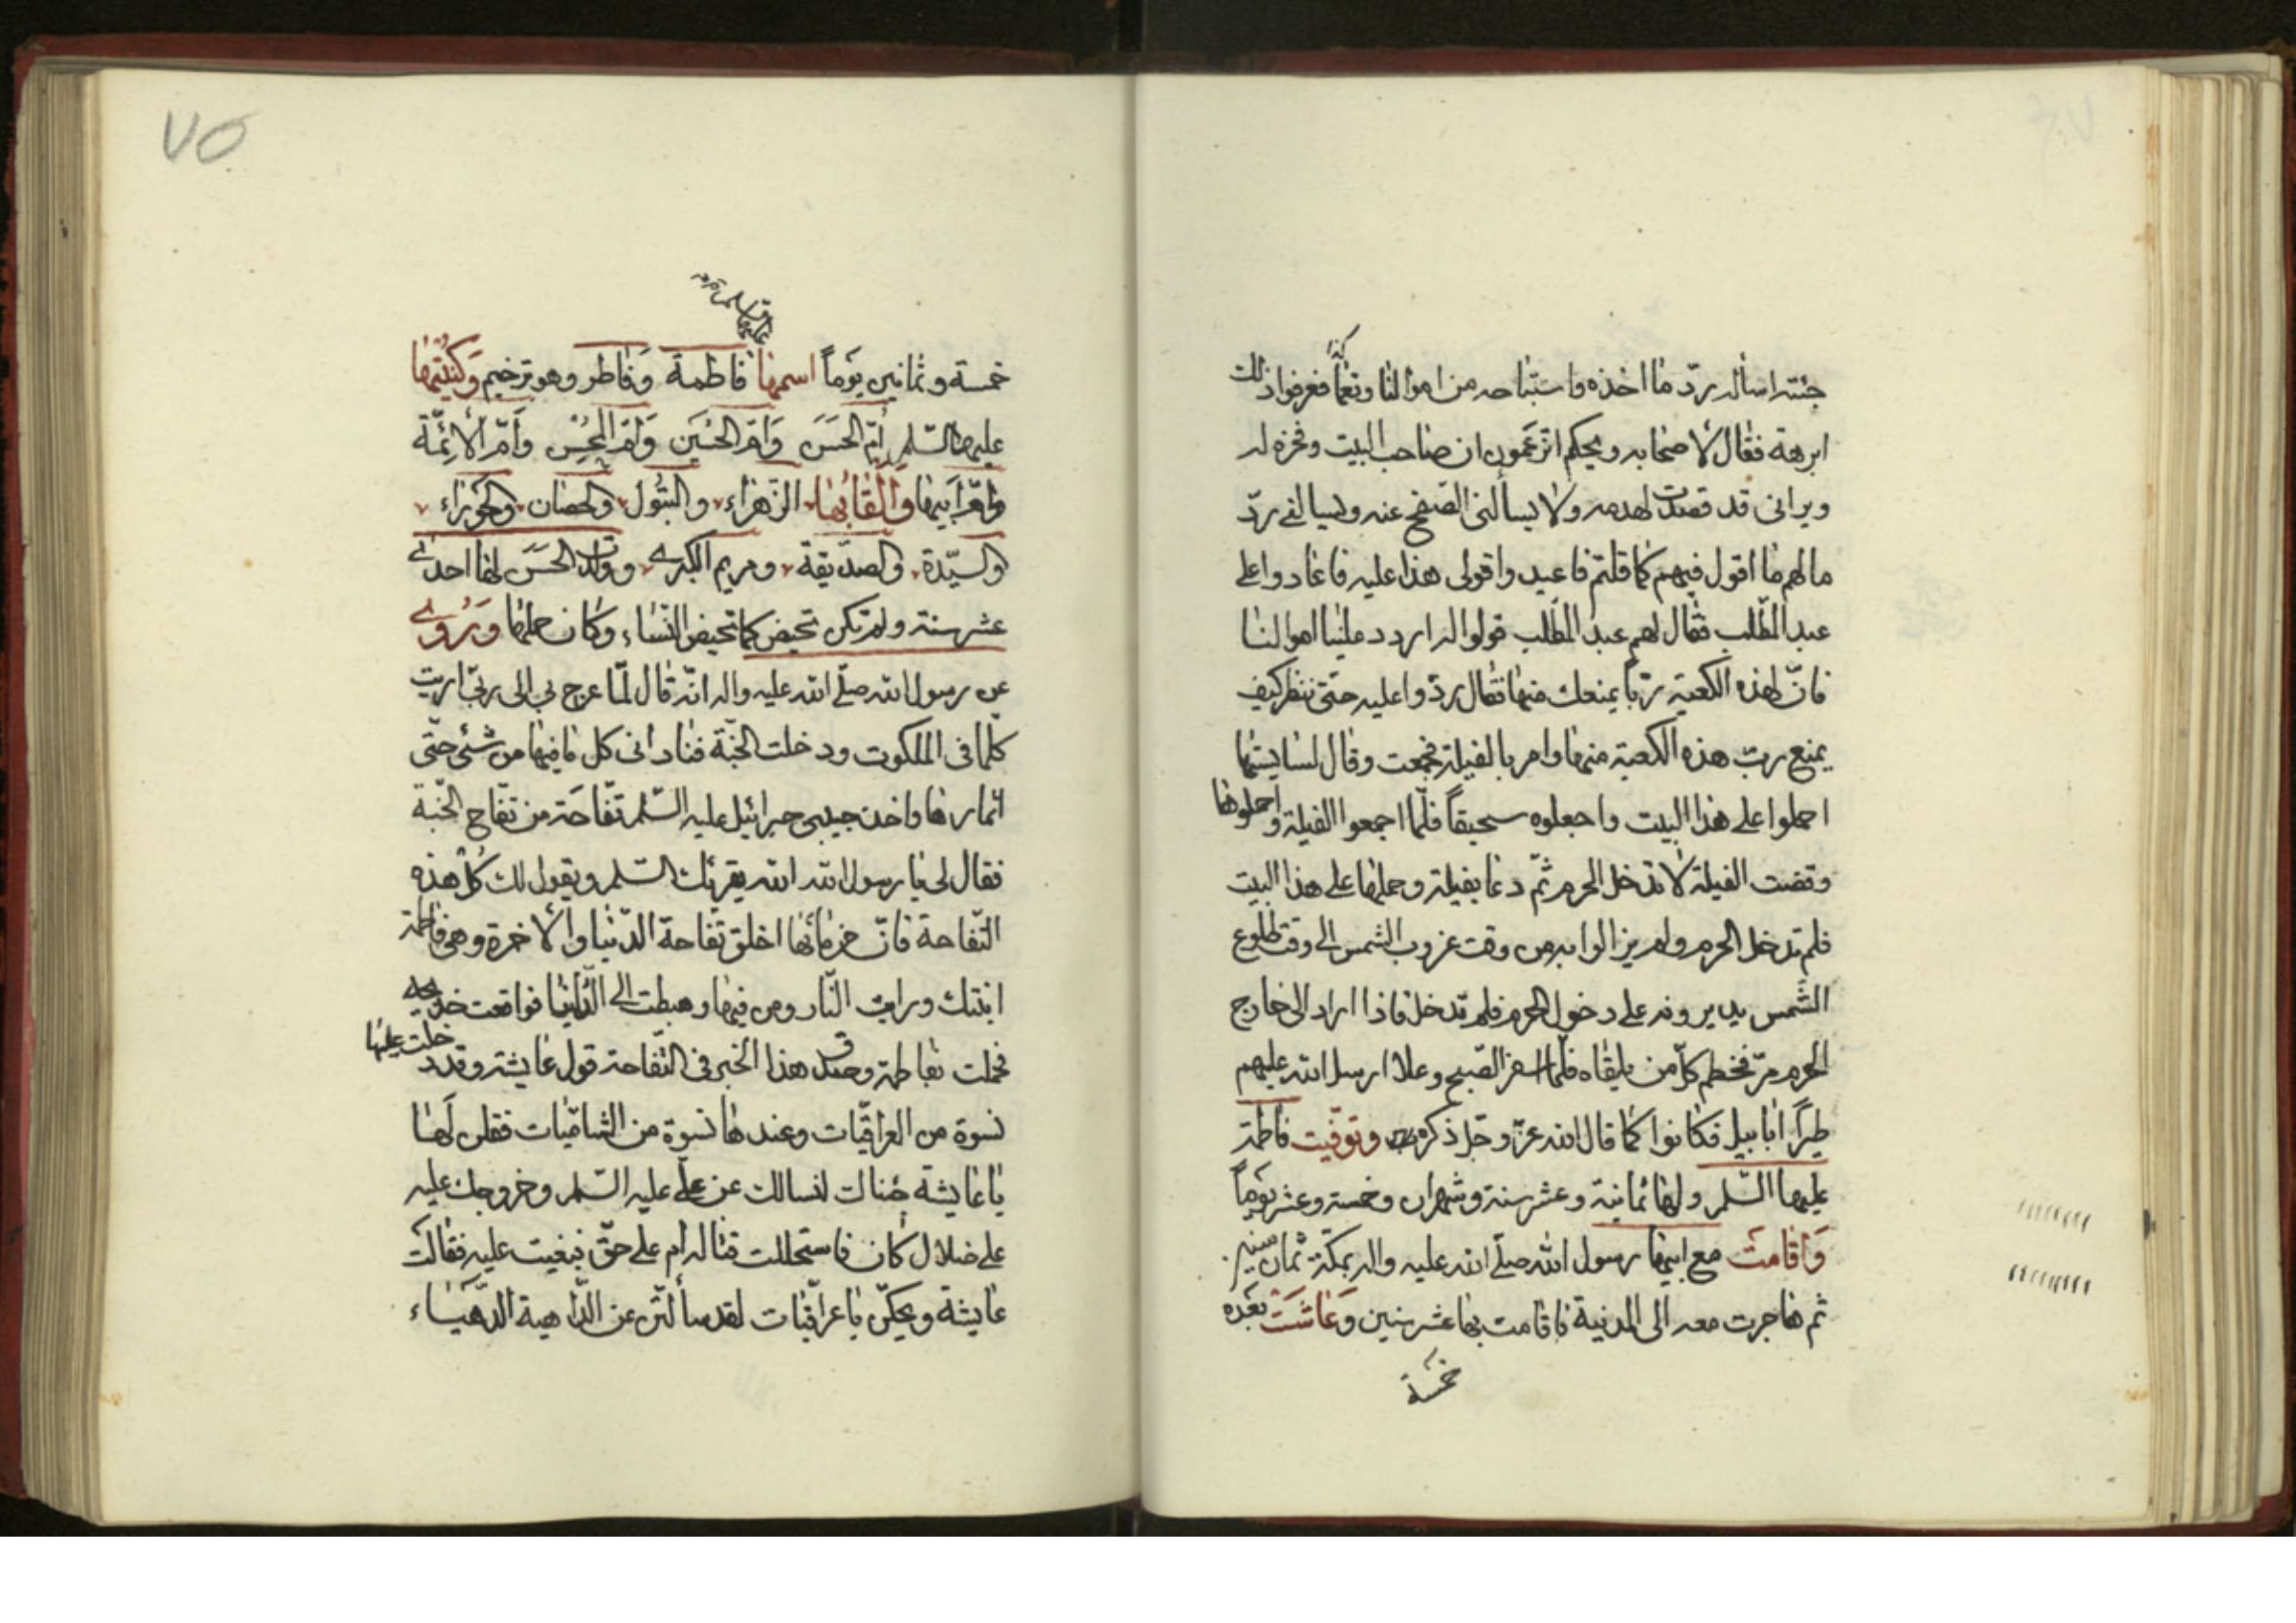 جئته اساله ردّ ما اخذه واستباحه من اموالنا ونعمنا فعرفوا ذلك
ابرهة فقال لاصحابه ويحكم اتزعمون ان صاحب البيت وفخره له
ويراني قد قصدت لهدمه ولا يسألني الصّفح عنه ويسالني ردّ
مالهم ما اقول فيهم كما قلتم فاعيدوا قولي هذا عليه فاعادوا على
عبد المطّلب فقال لهم عبد المطّلب قولوا له اردد علينا اموالنا
فانّ لهذه الكعبة ربّاً يمنعك منها فقال ردّوا عليه حتى ننظر كيف
يمنع ربّ هذه الكعبة منها وامر بالفيلة فجمعت وقال لسايسها
احملوا على هذا البيت واجعلوه سحيقاً فلمّا اجمعوا الفيلة وحملوها
وقفت الفيلة لا تدخل الحرم ثمّ دعا بفيلة وحملها على هذا البيت
فلم تدخل الحرم ولم يزالوا به من وقت غروب الشمس الى وقت طلوع
الشّمس يديرونه على دخول الحرم فلم تدخل فاذا اراد الى خارج
الحرم مرّ فحطم كلّ من يلقاه فلمّا اسفر الصّبح وعلا ارسل الله عليهم
طيراً ابابيل فكانوا كما قال الله عزّ وجلّ ذكره وتوفّيت فاطمة
عليها السّلم ولها ثمانية وعشر سنة وشهران وخمسة وعشر يوماً
وَاقامتْ مع ابيها رسول الله صلّى الله عليه واله بمكّة ثمان سنين
ثم هاجرت معه الى المدينة فاقامت بها عشر سنين وَعَاشَتْ بعده
خمسة
٧٥
خمسة وثمانين يَوماً اسمها فاطمة وَفاطر وهو ترخيم وَكُنيَتها
عليها السّلم أمّ الحسَن وَامّ الحسَين وَامّ المحسِن وَأمّ الأئِمّة
وامّ ابيها وألقابُها الزّهراء والبتُول والحصان والحَوراء
والسيّدة والصدّيقة ومريم الكبرى وولدت الحسَن لها احدى
عشر سنة ولم تكن تحيض كما تحيض النّساء وكان حملها وَرُوي
عن رسول الله صلّى الله عليه واله انّه قال لمّا عرج بي الى ربّي اريت
كلّما في الملكوت ودخلت الجنّة فناداني كل ما فيها من شئ حتّى
اثمارها واخذ حبيبي جبرائيل عليه السّلم تفّاحة من تفّاح الجنّة
فقال لي يا رسول الله الله يقرئك السّلم ويقول لك كُلْ هذه
التّفاحة فانّ من مائها اخلق تفاحة الدّنيا والأخرة وهي فاطمة
ابنتك ورايت النّار ومن فيها وهبطت الى الدّنيا فواقعت خديجة
فحملت بفاطمة وصدق هذا الخبر في التّفاحة قول عايشة وقد دخلت عليها
نسوة من العراقيّات وعندها نسوة من الشّاميّات فقلن لَها
يا عايشة جئناك لنسالك عن علي عليه السّلم وخروجك عليه
على ضلال كان فاستحللت قتاله أم على حقّ فبغيت عليه فقالت
عايشة ويحكنّ يا عراقيّات لقد سألتنّ عن الدّاهية الدّهيَاء